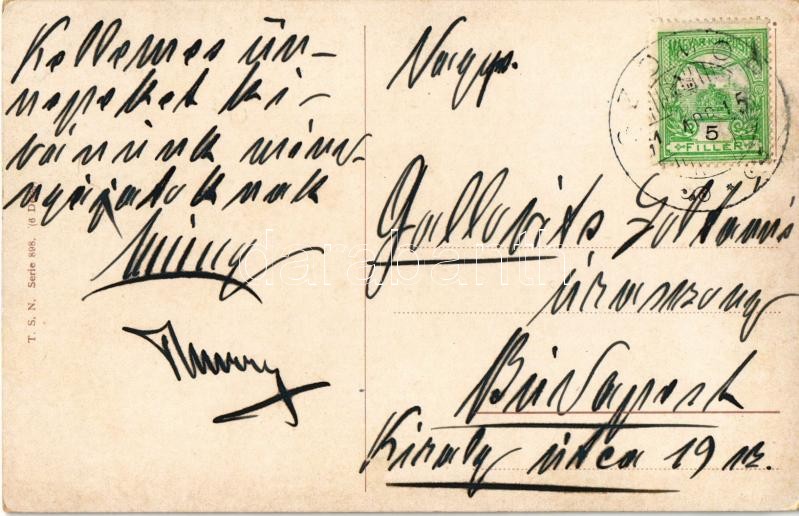 Kellemes ün-
nepeket ki-
vánunk mind-
nyájatoknak
T. S. N. Serie 898. (6 D
Nagys.
Gallovits Zoltanné
úrasszony
Budapest
Király utca 19 sz.
MAGYAR KIR.
5
FILLER
darabanth